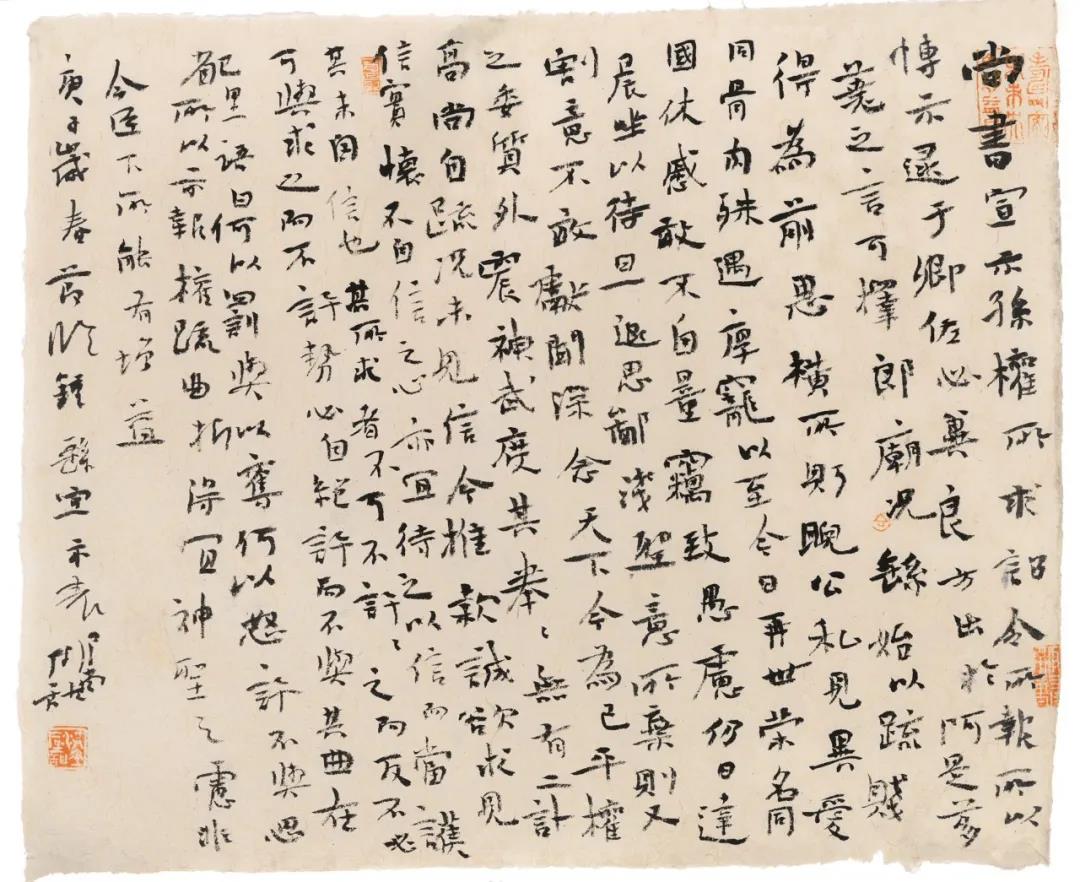 尚書宣示孫權所求詔令所報所以
博示逮于卿佐必冀良方出於阿是芻
蕘之言可擇郎廟況繇始以疏賤
得為前恩橫所盻睨公私見異愛
同骨肉殊遇厚寵以至今日再世榮名同
國休慼敢不自量竊致愚慮仍日達
晨坐以待旦退思鄙淺聖意所棄則又
割意不敢獻聞深念天下今為已平權
之委質外震神武度其拳〻無有二計
高尚自疏況未見信今推款誠欲求見
信實懷不自信之心亦宜待之以信而當護
其未自信也其所求者不可不許〻之而反不必
可與求之而不許勢必自絕許而不與其曲在
己里語曰何以罰與以奪何以怒許不與思
省所以示報權疏曲折得宜神聖之慮非
今臣下所能有增益
庚子歲春節臨鍾繇宣示表